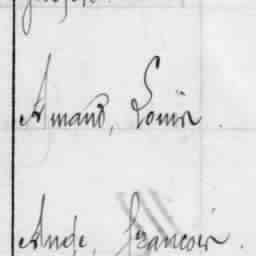 Amand, Louis.
Ange, François.